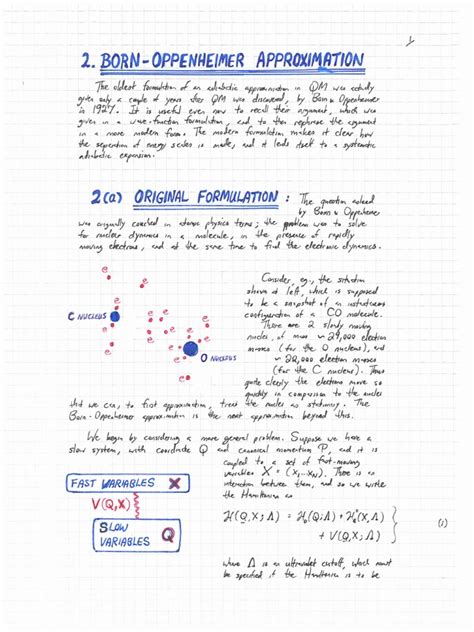 1
2. BORN-OPPENHEIMER APPROXIMATION
The oldest formulation of an adiabatic approximation in QM was actually
given only a couple of years after QM was discovered, by Born & Oppenheimer
in 1927. It is useful even now to recall their argument, which was
given in a wave-function formulation, and to then rephrase the argument
in a more modern form. The modern formulation makes it clear how
the separation of energy scales is made, and it lends itself to a systematic
adiabatic expansion.
2(a) ORIGINAL FORMULATION : The question asked
by Born & Oppenheimer
was originally couched in atomic physics terms; the problem was to solve
for nuclear dynamics in a molecule, in the presence of rapidly
moving electrons, and at the same time to find the electronic dynamics.
e
e
e
e
e
e
e
e
e
e
e
e
C NUCLEUS
O NUCLEUS
Consider, eg., the situation
shown at left, which is supposed
to be a snapshot of an instantaneous
configuration of a CO molecule.
There are 2 slowly moving
nuclei, of mass ~ 29,000 electron
masses (for the O nucleus), and
~ 22,000 electron masses
(for the C nucleus). Thus
quite clearly the electrons move so
quickly in comparison to the nuclei
that we can, to first approximation, treat the nuclei as stationary. The
Born-Oppenheimer approximation is the next approximation beyond this.
We begin by considering a more general problem. Suppose we have a
slow system, with coordinate Q and canonical momentum P, and it is
coupled to a set of fast-moving
variables X = (x₁...x_N). There is an
interaction between them, and so we write
the Hamiltonian as
FAST VARIABLES X
V(Q,X)
SLOW
VARIABLES Q
H(Q,X;Λ) = H₀(Q;Λ) + H₀(X,Λ)
+ V(Q,X;Λ)
(1)
where Λ is an ultraviolet cutoff, which must
be specified if the Hamiltonian is to be